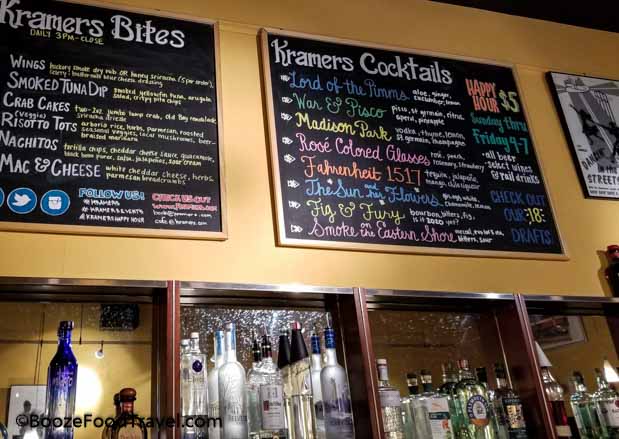 Kramers Bites
DAILY 3PM-CLOSE
WINGS hickory smoke dry rub OR honey sriracha (5 per order),
celery, buttermilk blue cheese dressing
SMOKED TUNA DIP smoked yellowfin tuna, arugula
salad, crispy pita chips
CRAB CAKES two-2oz. jumbo lump crab, Old Bay remoulade
(Veggie) sriracha
RISOTTO TOTS arborio rice, herbs, parmesan, roasted
seasonal veggies, local mushrooms, beer-
braised
NACHITOS tortilla chips, cheddar cheese sauce, guacamole,
black bean puree, salsa, jalapeños, sour cream
MAC & CHEESE white cheddar cheese, herbs,
parmesan breadcrumbs
FOLLOW US!
@KRAMERS
#KRAMERSHAPPYHOUR
CHECK US OUT
Kramers Cocktails
LORD OF THE PIMMS aloe, ginger,
cucumber, lemon
WAR & PISCO pisco, st germain, citrus,
aperol, pineapple
MADISON PARK vodka, thyme, lemon,
st germain, champagne
ROSÉ COLORED GLASSES rosé,
rosemary, strawberry
FAHRENHEIT 1517 tequila, jalapeño
mango
THE SUN AND HER FLOWERS
chamomile, lemon
FIG & FURY bourbon, bitters, fig,
is it 2020 yet?
SMOKE ON THE EASTERN SHORE mezcal,
bitters, sour
HAPPY
HOUR $5
Sunday thru
Friday 4-7
all beer
select wines
& rail drinks
CHECK
OUT
OUR 18
DRAFTS
STREET
©BoozeFoodTravel.com